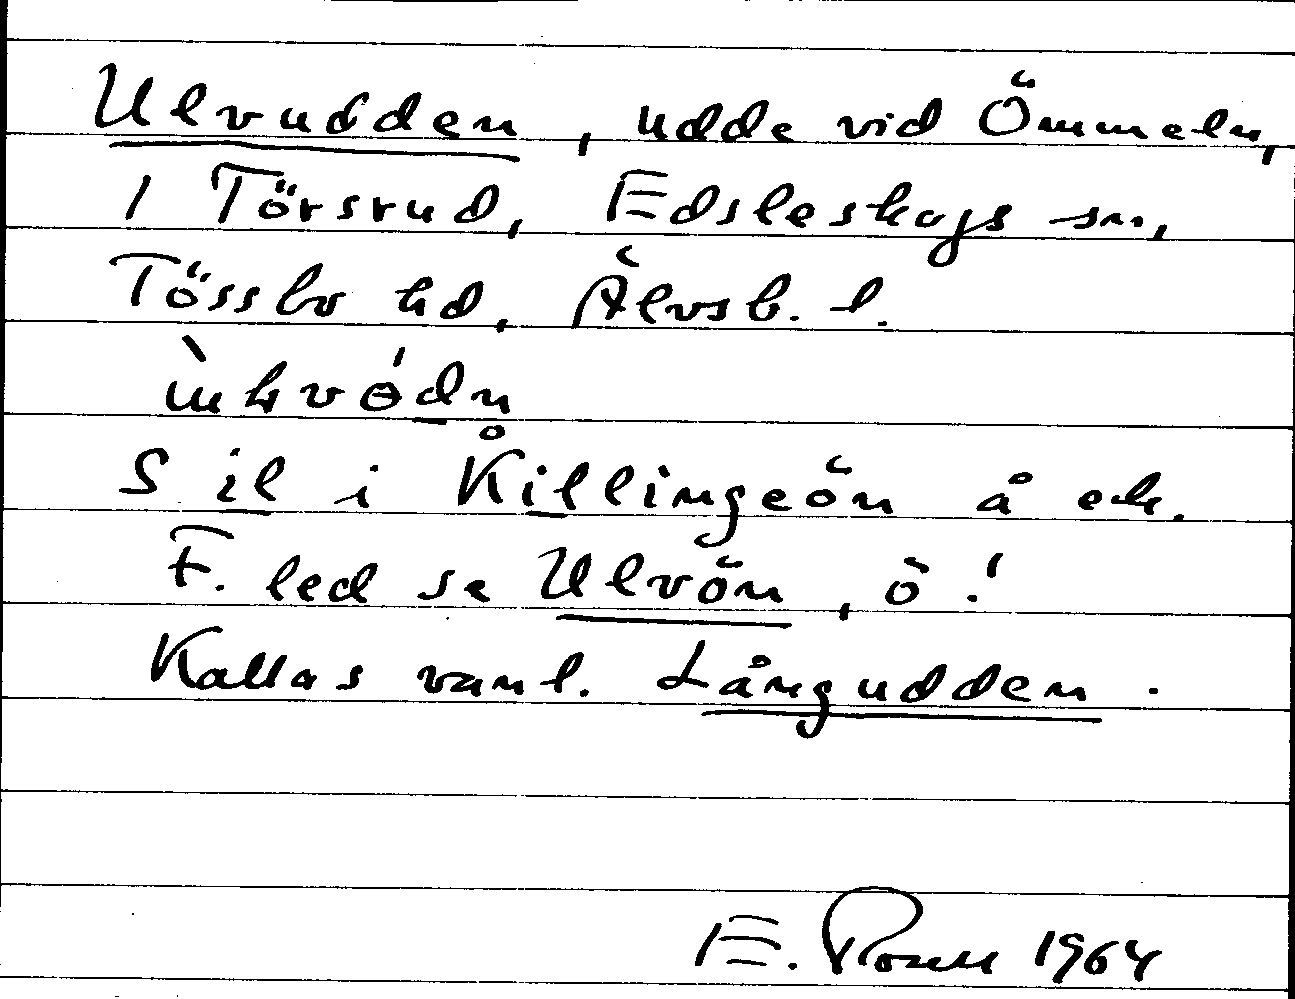 Ulvudden, udde vid Ömmeln,
1 Törsrud, Edsleskogs sn,
Tössbo hd, Älvsb. l.
S il i Killingeön å ek.
F. led se Ulvön, ö!
Kallas vanl. Långudden.
E. Rosell 1964